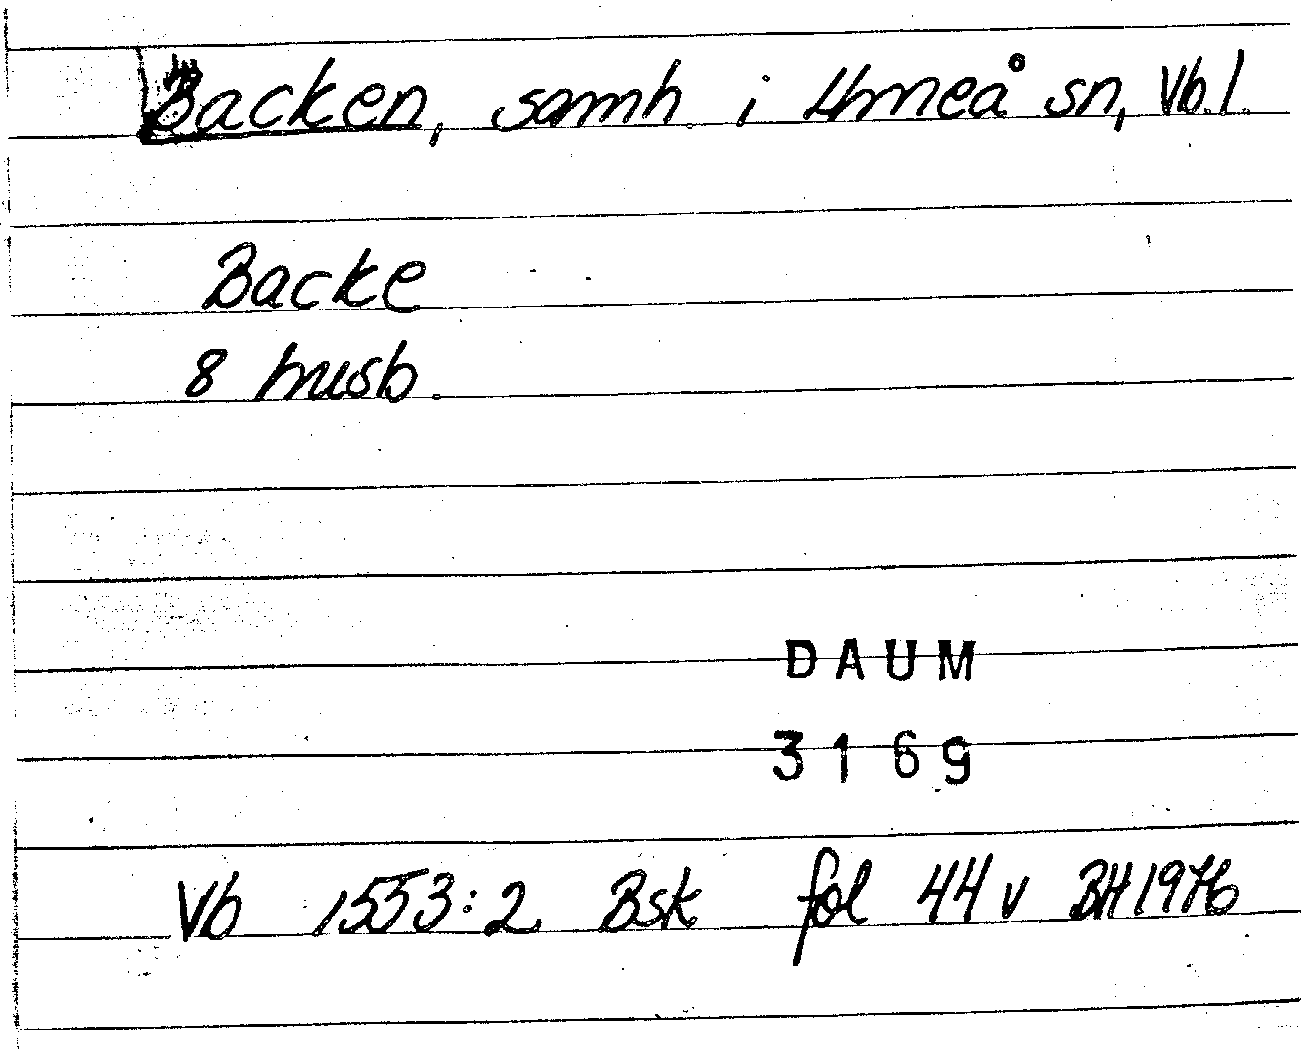 Backen, samh. i Umeå sn, Vb.l.
Backe
8 husb.
DAUM
3169
Vb 1553:2 Bsk fol 44 v BH 1976